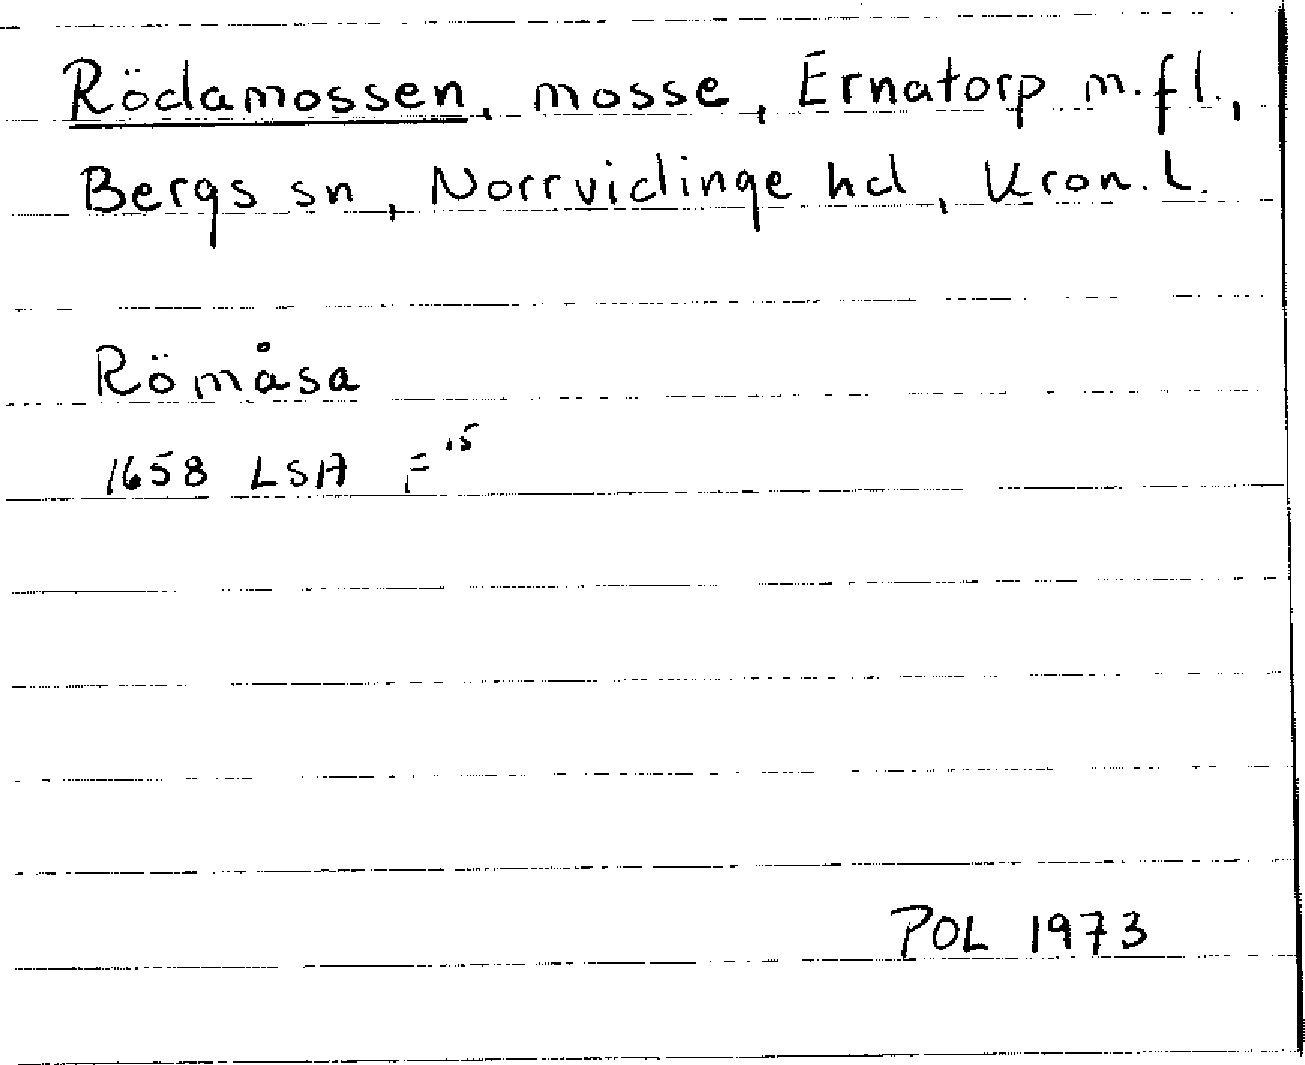 Rödamossen, mosse, Ernatorp m.fl.,
Bergs sn, Norrvidinge hd, Kron. L.
Römåsa
1658 LSA F 15
POL 1973